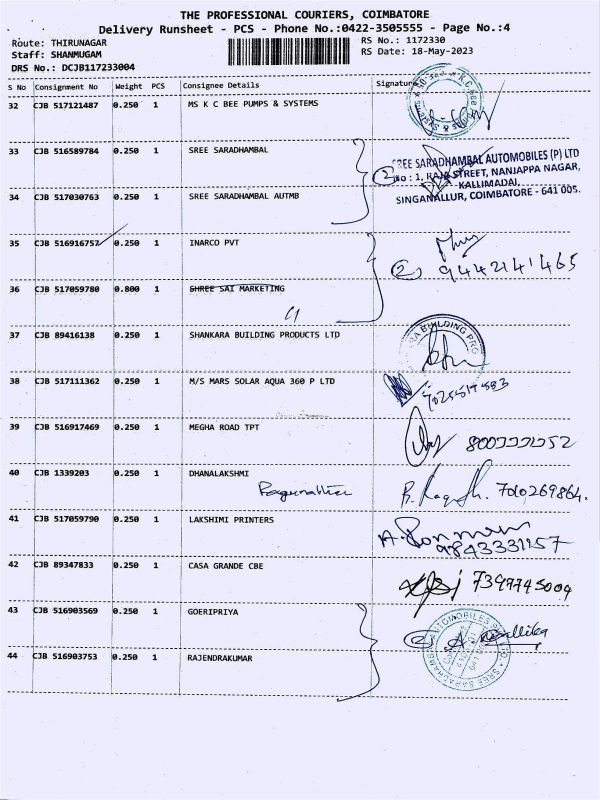 THE PROFESSIONAL COURIERS, COIMBATORE
Delivery Runsheet - PCS - Phone No.:0422-3505555 - Page No.:4
Route: THIRUNAGAR RS No.: 1172330
Staff: SHANMUGAM RS Date: 18-May-2023
DRS No.: DCJB117233004
S No Consignment No Weight PCS Consignee Details Signature
32 CJB 517121487 0.250 1 MS K C BEE PUMPS & SYSTEMS
33 CJB 516589784 0.250 1 SREE SARADHAMBAL
SREE SARADHAMBAL AUTOMOBILES (P) LTD
2 No : 1, RAJA STREET, NANJAPPA NAGAR,
KALLIMADAI,
SINGANALLUR, COIMBATORE - 641 005.
34 CJB 517030763 0.250 1 SREE SARADHAMBAL AUTMB
35 CJB 516916757 0.250 1 INARCO PVT
2 9442141465
36 CJB 517059780 0.800 1 SHREE SAI MARKETING
37 CJB 89416138 0.250 1 SHANKARA BUILDING PRODUCTS LTD
38 CJB 517111362 0.250 1 M/S MARS SOLAR AQUA 360 P LTD
39 CJB 516917469 0.250 1 MEGHA ROAD TPT
40 CJB 1339203 0.250 1 DHANALAKSHMI
7010269864.
41 CJB 517059790 0.250 1 LAKSHIMI PRINTERS
9843331157
42 CJB 89347833 0.250 1 CASA GRANDE CBE
7397745009
43 CJB 516903569 0.250 1 GOERIPRIYA
2 A. Mallika
44 CJB 516903753 0.250 1 RAJENDRAKUMAR